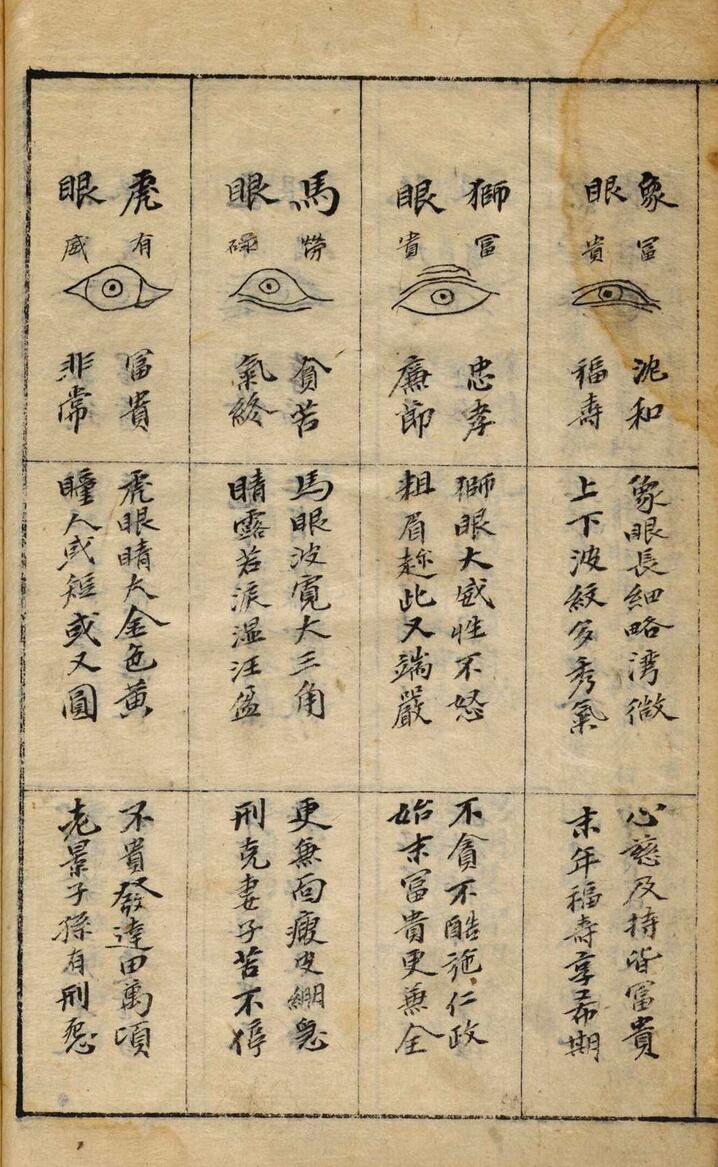 象
眼
富
貴
沈和
福壽
象眼長細略湾微
上下波紋多秀氣
心慈及持皆富貴
末年福壽享希期
獅
眼
富
貴
忠孝
廉節
獅眼大威性不怒
粗眉趂此又端嚴
不貪不酷施仁政
始末富貴更兼全
馬
眼
勞
碌
貧苦
氣終
馬眼波寬大三角
睛露若淚湿汪
更無面瘦皮綳急
刑克妻子苦不停
虎
眼
有
威
富貴
非常
虎眼睛大金色黃
瞳人或短或又圓
不貴發達田萬頃
老景子孫有刑